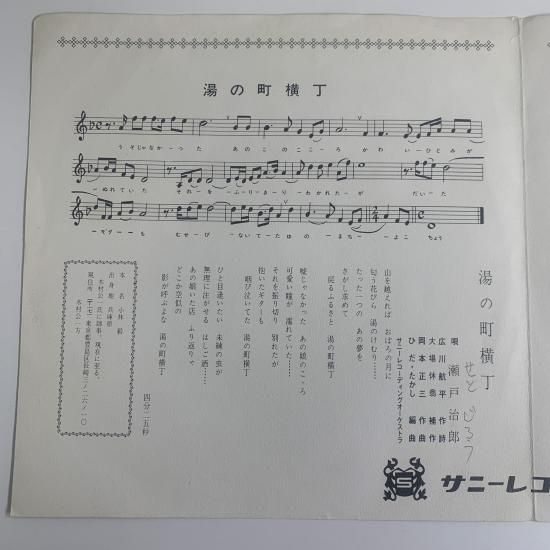 湯の町横丁
うそじゃなかった あのこのこころ かわいーひとみが
ーぬれていた それーをーふーりーきーりーわかれたーが だいーた
ーギターーも むせーびーないてーたゆのーまちーーよこ ちょう
湯の町横丁
広川航平 作詩
大場休哉 補作
岡本正三 作曲
ひだ・たかし 編曲
サニーレコーディングオーケストラ
唄 瀬戸治郎
せと じろう
山を越えれば おぼろの月に
匂う花びら 湯のけむり……
たった一つの あの夢を
さがし求めて
戻るふるさと 湯の町横丁
嘘じゃなかった あの娘のこころ
可愛い瞳が 濡れていた……
それを振り切り 別れたが
抱いたギターも
咽び泣いてた 湯の町横丁
ひと目逢いたい 未練の虫が
無理に注がせる はしご酒……
あの娘いた店 ふり返りゃ
どこか空似の
影が呼ぶよな 湯の町横丁
四分二五秒
本名 小林
出身地 兵庫県
木村公一氏に師事、現在に至る。
現住所 東京都豊島区長崎三ノ二六ノ一〇
木村公一方
サニーレコ